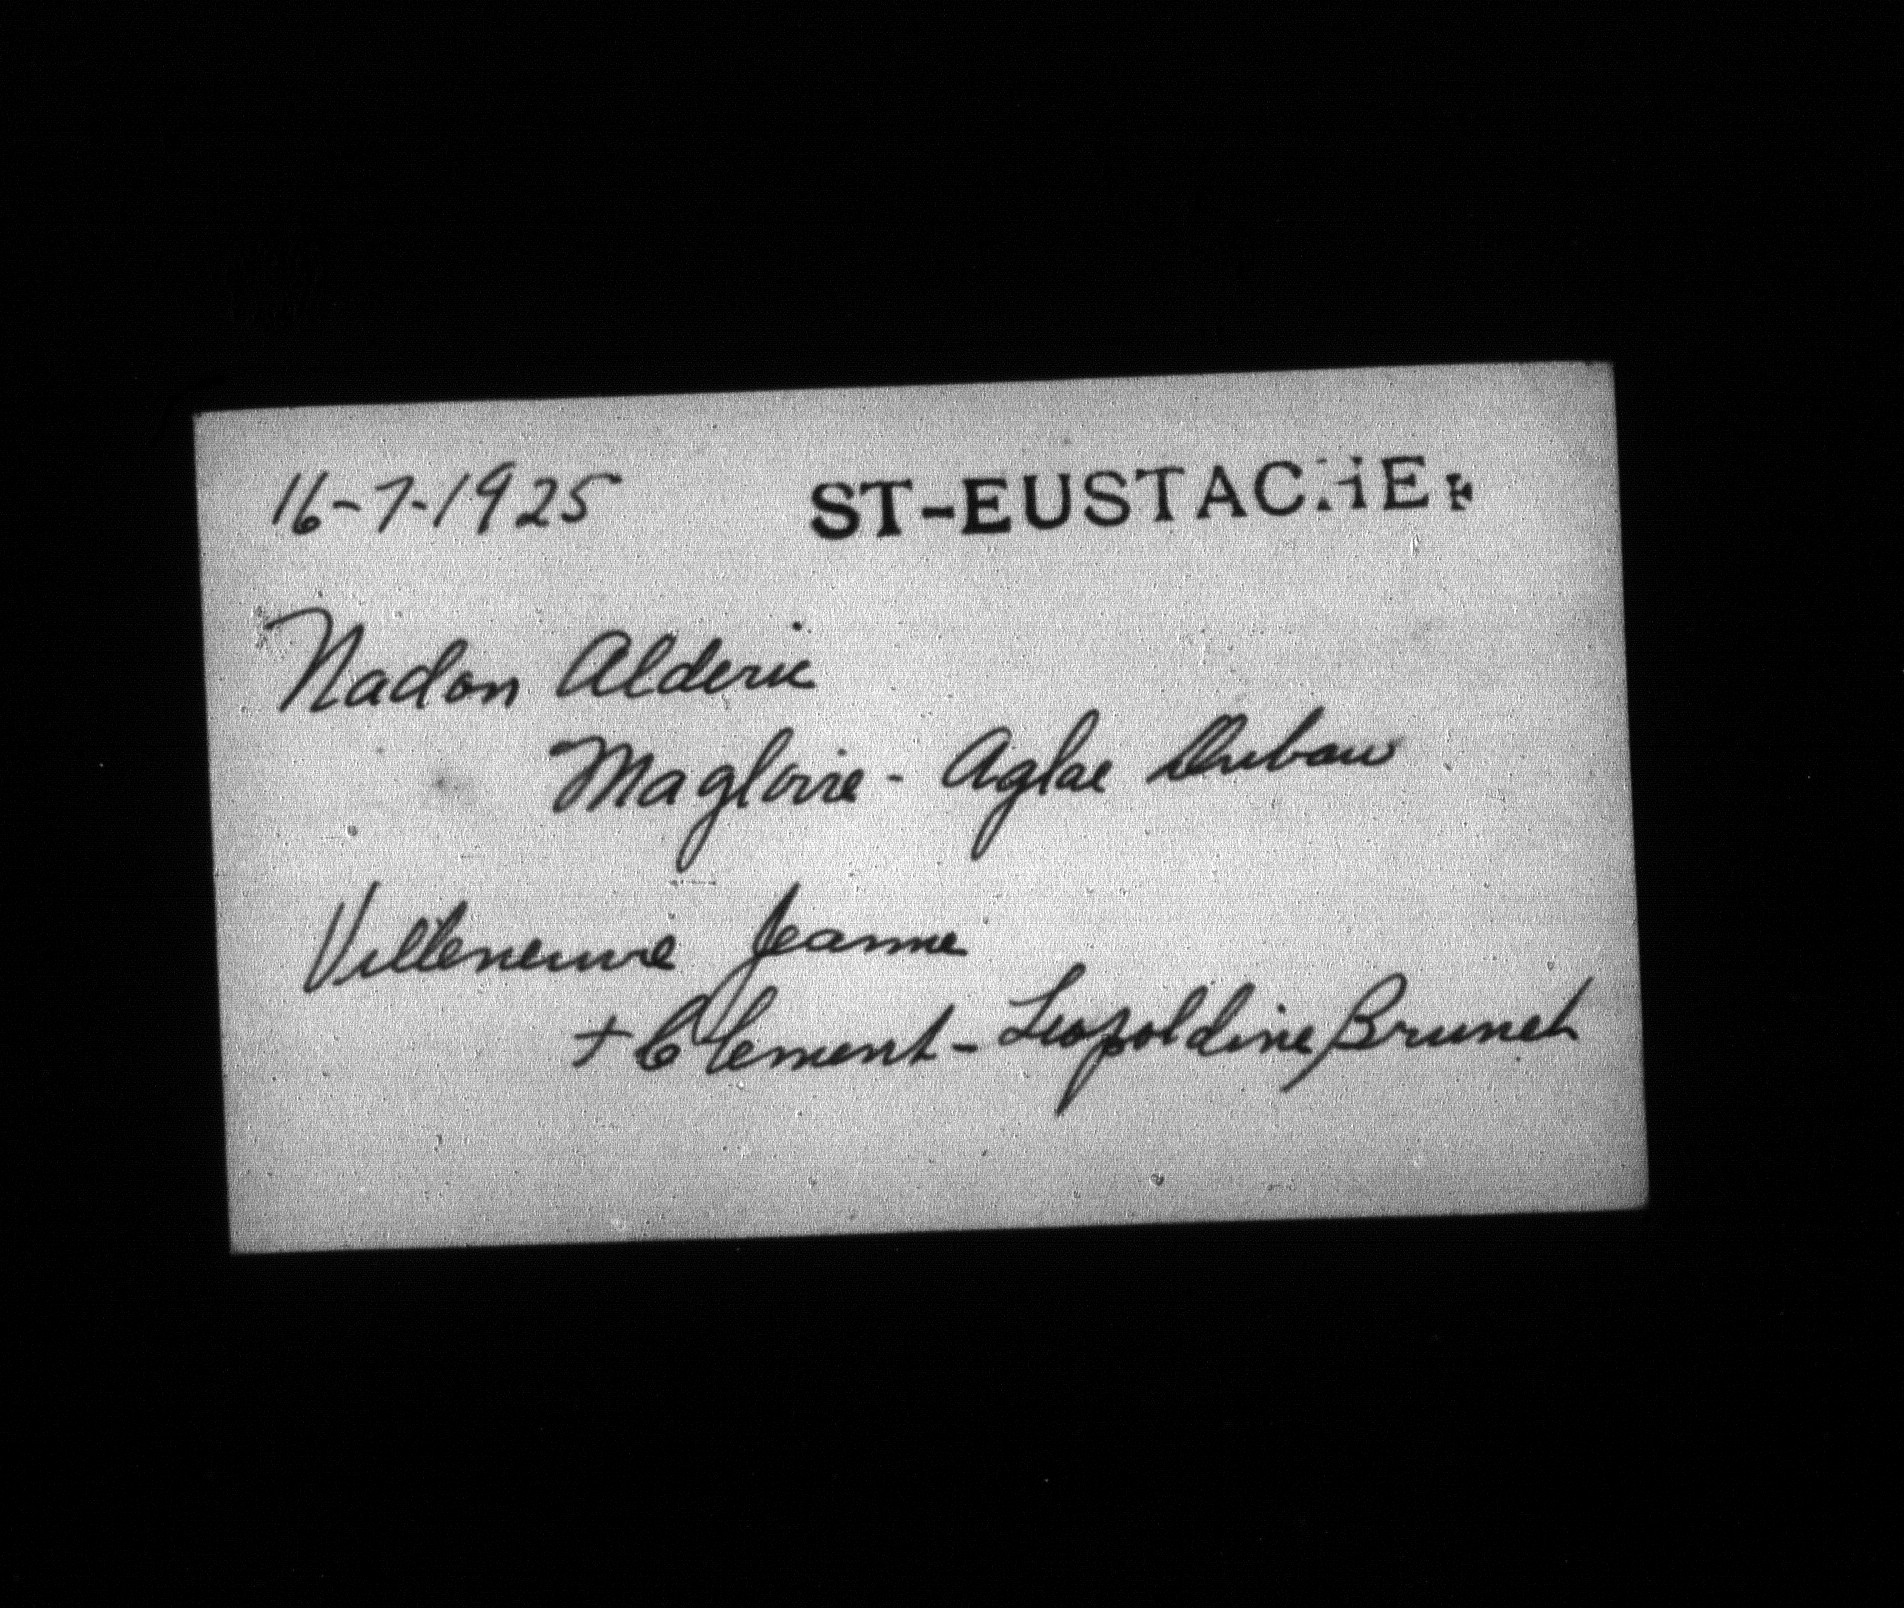 16-7-1925 ST-EUSTACHE
Nadon Alderic
Magloire - Aglae Dubau
Villeneuve Jeanne
+ Clement - Leopoldine Brunet